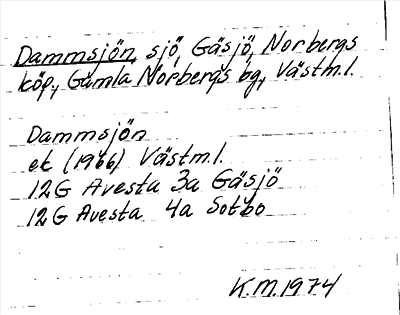 Dammsjön, sjö, Gäsjö, Norbergs
köp., Gamla Norbergs bg, Västm.l.
Dammsjön
ek (1966) Västm.l.
12G Avesta 3a Gäsjö
12G Avesta 4a Sotbo
K.M. 1974